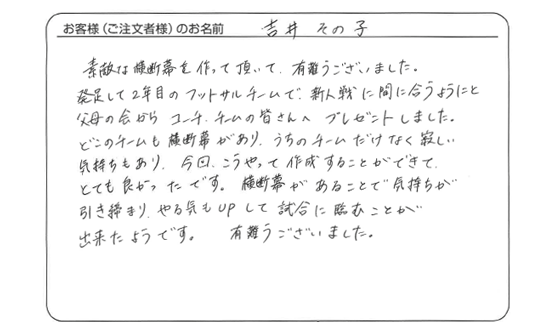 お客様（ご注文者様）のお名前 吉井 その子
素敵な横断幕を作って頂いて、有難うございました。
発足して2年目のフットサルチームで、新人戦に間に合うようにと
父母の会から コーチ、チームの皆さんへ プレゼントしました。
どこのチームも 横断幕があり、うちのチームだけなく寂しい
気持ちもあり、今回、こうやって作成することができて、
とても良かったです。横断幕があることで気持ちが
引き締まり、やる気もUPして試合に臨むことが
出来たようです。 有難うございました。